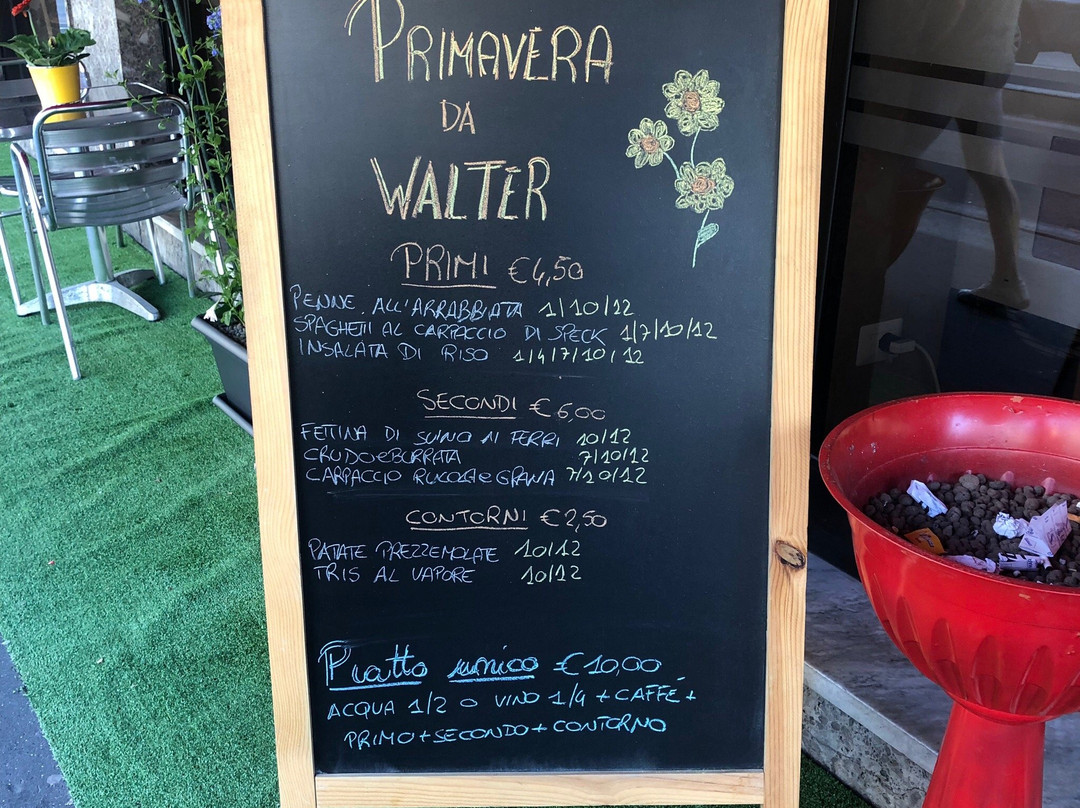 PRIMAVERA
DA
WALTER
PRIMI €4,50
PENNE ALL'ARRABBIATA 1/10/12
SPAGHETTI AL CARPACCIO DI SPECK 1/7/10/12
INSALATA DI RISO 1/4/7/10/12
SECONDI €6,00
FETTINA DI SUINO AI FERRI 10/12
CRUDO e BURRATA 7/10/12
CARPACCIO RUCOLA e GRANA 7/10/12
CONTORNI €2,50
PATATE PREZZEMOLATE 10/12
TRIS AL VAPORE 10/12
Piatto unico €10,00
ACQUA 1/2 O VINO 1/4 + CAFFÉ +
PRIMO + SECONDO + CONTORNO